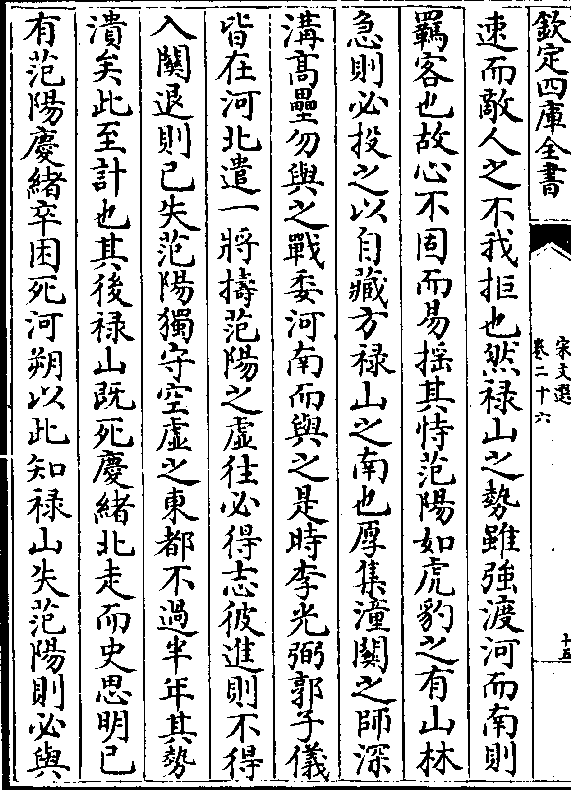 欽定四庫全書
宋文選
卷二十六
十五
速而敵人之不我拒也然禄山之勢雖強渡河而南則
羈客也故心不固而易揺其恃范陽如虎豹之有山林
急則必投之以自藏方禄山之南也厚集潼關之師深
溝高壘勿與之戰委河南而與之是時李光弼郭子儀
皆在河北遣一將擣范陽之虚往必得志彼進則不得
入關退則已失范陽獨守空虚之東都不過半年其勢
潰矣此至計也其後禄山既死慶緒北走而史思明已
有范陽慶緒卒困死河朔以此知禄山失范陽則必與